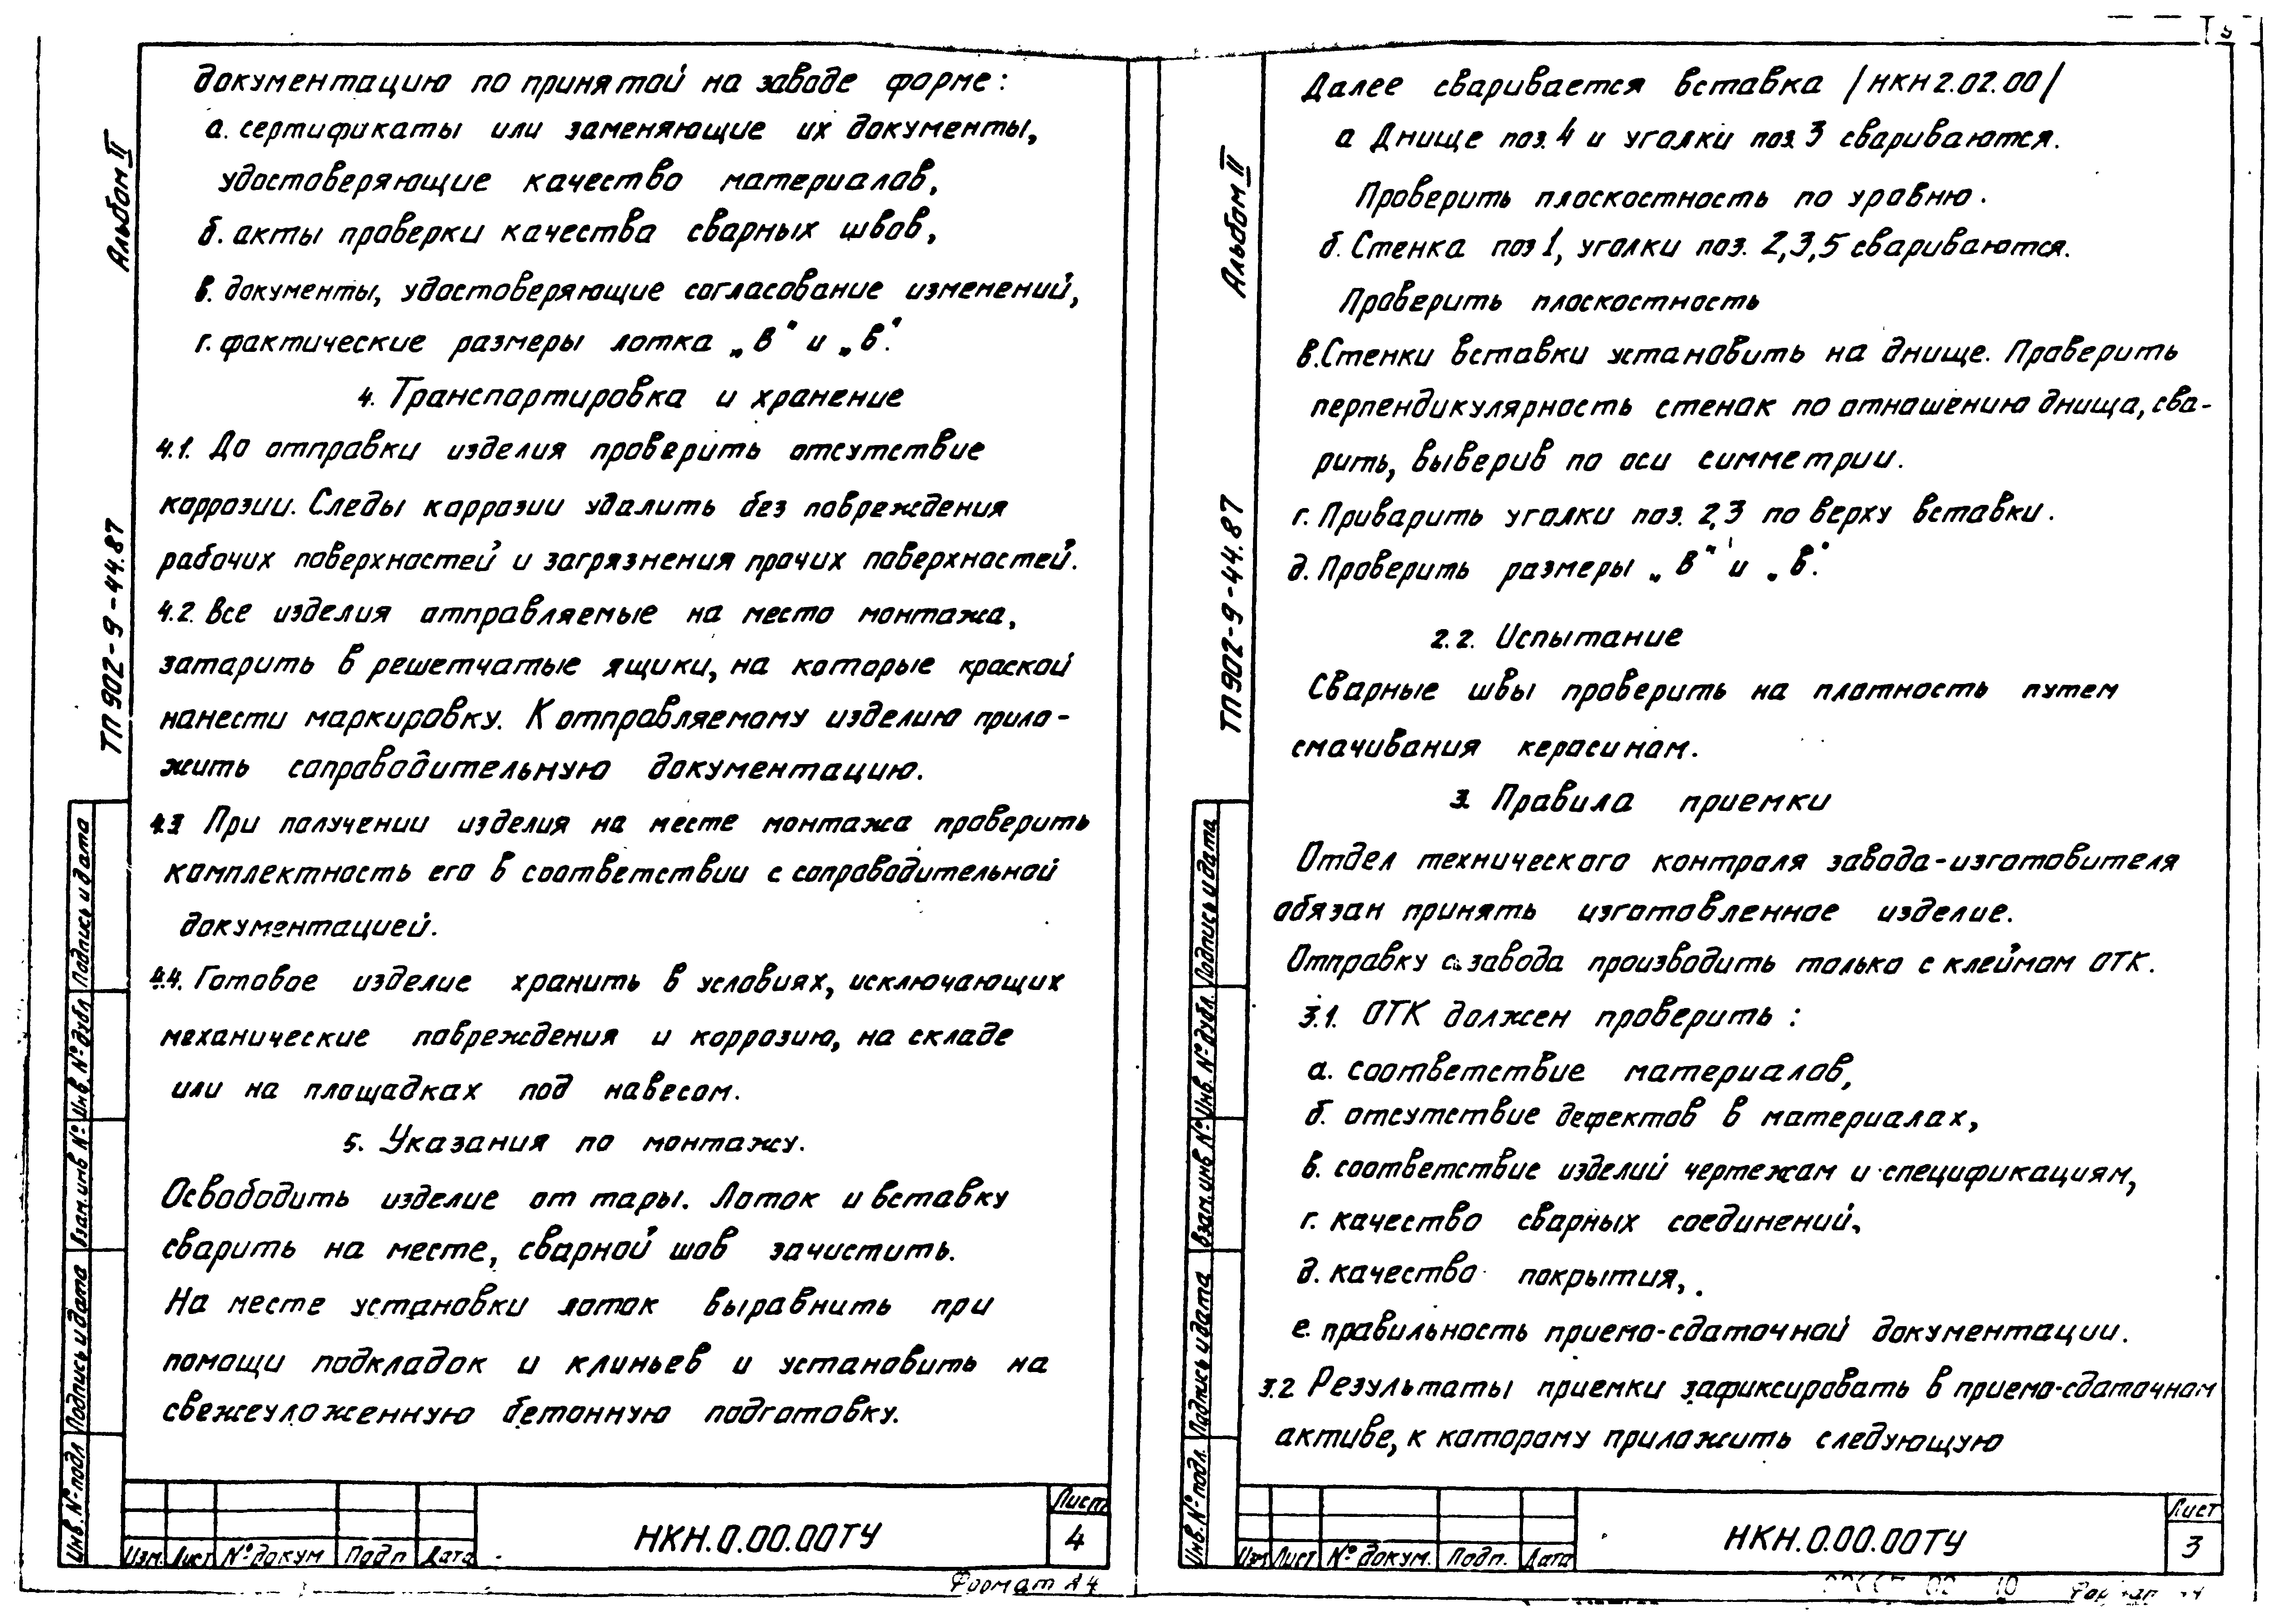 документацию по принятой на заводе форме:
а. сертификаты или заменяющие их документы,
удостоверяющие качество материалов,
б. акты проверки качества сварных швов,
в. документы, удостоверяющие согласование изменений,
г. фактические размеры лотка „В" и „в".
4. Транспортировка и хранение
4.1. До отправки изделия проверить отсутствие
коррозии. Следы коррозии удалить без повреждения
рабочих поверхностей и загрязнения прочих поверхностей.
4.2. Все изделия отправляемые на место монтажа,
затарить в решетчатые ящики, на которые краской
нанести маркировку. К отправляемому изделию прило-
жить сопроводительную документацию.
4.3 При получении изделия на месте монтажа проверить
комплектность его в соответствии с сопроводительной
документацией.
4.4. Готовое изделие хранить в условиях, исключающих
механические повреждения и коррозию, на складе
или на площадках под навесом.
5. Указания по монтажу.
Освободить изделие от тары. Лоток и вставку
сварить на месте, сварной шов зачистить.
На месте установки лоток выравнить при
помощи подкладок и клиньев и установить на
свежеуложенную бетонную подготовку.
Альбом II
ТП 902-9-44.87
Подпись и дата
Инв. № дубл
Взам. инв №
Подпись и дата
Инв. № подл
Изм. Лист № докум Подп Дата
НКН.0.00.00ТУ
Лист
4
Формат А4
Далее сваривается вставка /НКН2.02.00/
а Днище поз. 4 и уголки поз. 3 свариваются.
Проверить плоскостность по уровню.
б. Стенка поз 1, уголки поз. 2,3,5 свариваются.
Проверить плоскостность
в. Стенки вставки установить на днище. Проверить
перпендикулярность стенок по отношению днища, сва-
рить, выверив по оси симметрии.
г. Приварить уголки поз. 2,3 по верху вставки.
д. Проверить размеры „В" и „в".
2.2. Испытание
Сварные швы проверить на плотность путем
смачивания керосином.
3. Правила приемки
Отдел технического контроля завода-изготовителя
обязан принять изготовленное изделие.
Отправку с завода производить только с клеймом ОТК.
3.1. ОТК должен проверить:
а. соответствие материалов,
б. отсутствие дефектов в материалах,
в. соответствие изделий чертежам и спецификациям,
г. качество сварных соединений,
д. качество покрытия,
е. правильность приемо-сдаточной документации.
3.2 Результаты приемки зафиксировать в приемо-сдаточном
активе, к которому приложить следующую
Альбом II
ТП 902-9-44.87
Подпись и дата
Инв. № дубл.
Взам. инв №
Подпись и дата
Инв. № подл.
Изм Лист № докум. Подп. Дата
НКН.0.00.00ТУ
Лист
3